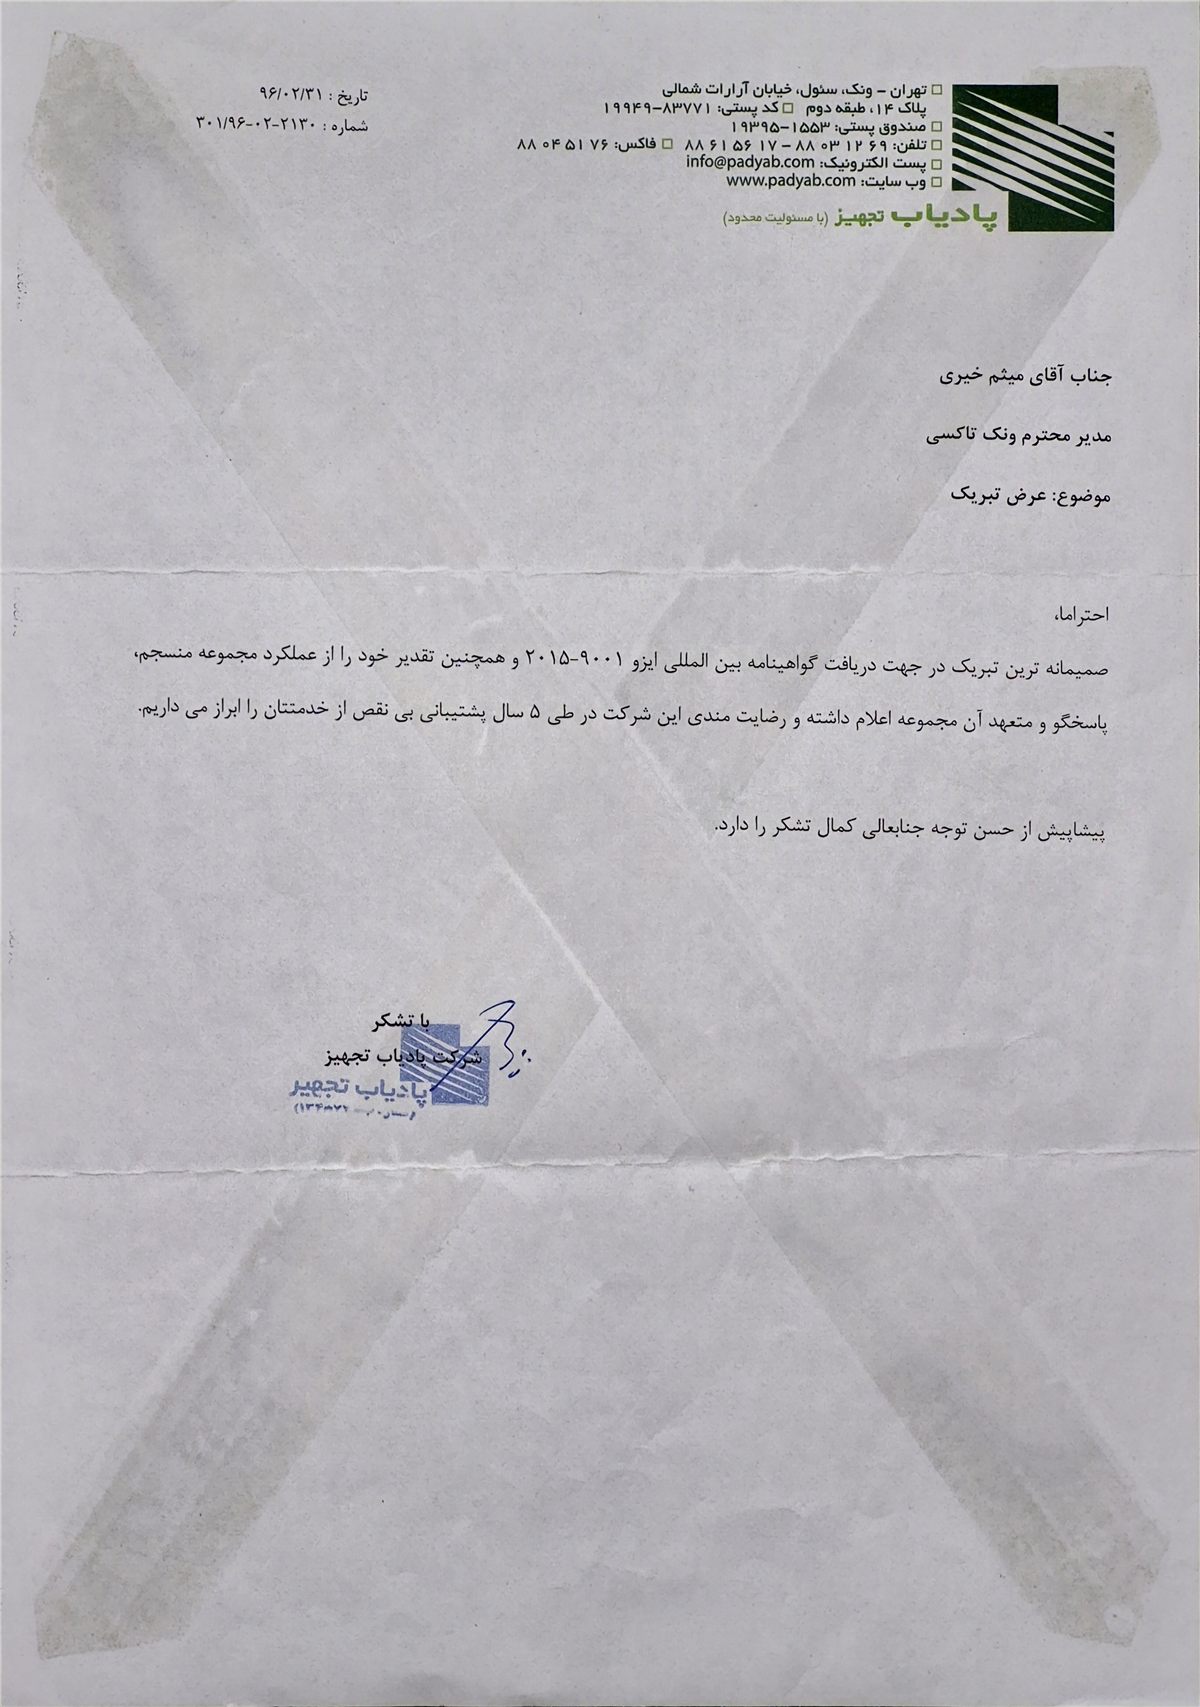 تاریخ : ۹۶/۰۲/۳۱
شماره : ۳۰۱/۹۶-۰۲-۲۱۳۰
تهران - ونک، سئول، خیابان آرارات شمالی
پلاک ۱۴، طبقه دوم □ کد پستی: ۸۳۷۷۱-۱۹۹۴۹
صندوق پستی: ۱۵۵۳-۱۹۳۹۵
تلفن: ۶۹ ۱۲ ۰۳ ۸۸ - ۱۷ ۵۶ ۶۱ ۸۸ □ فاکس: ۷۶ ۵۱ ۰۴ ۸۸
پست الکترونیک: info@padyab.com
وب سایت: www.padyab.com
پادیاب تجهیز (با مسئولیت محدود)
جناب آقای میثم خیری
مدیر محترم ونک تاکسی
موضوع: عرض تبریک
احتراما،
صمیمانه ترین تبریک در جهت دریافت گواهینامه بین المللی ایزو ۹۰۰۱-۲۰۱۵ و همچنین تقدیر خود را از عملکرد مجموعه منسجم،
پاسخگو و متعهد آن مجموعه اعلام داشته و رضایت مندی این شرکت در طی ۵ سال پشتیبانی بی نقص از خدمتتان را ابراز می داریم.
پیشاپیش از حسن توجه جنابعالی کمال تشکر را دارد.
با تشکر
شرکت پادیاب تجهیز
پادیاب تجهیز